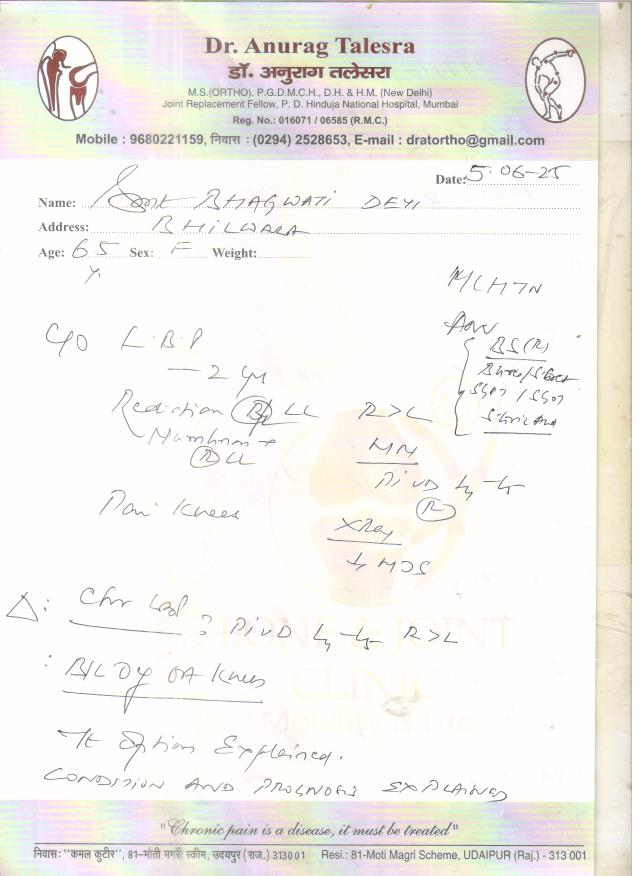 Dr. Anurag Talesra
डॉ. अनुराग तलेसरा
M.S.(ORTHO), P.G.D.M.C.H., D.H. & H.M. (New Delhi)
Joint Replacement Fellow, P. D. Hinduja National Hospital, Mumbai
Reg. No.: 016071 / 06585 (R.M.C.)
Mobile : 9680221159, निवास : (0294) 2528653, E-mail : dratortho@gmail.com
Date: 5.06-25
Name: Smt BHAGWATI DEVI
Address: BHILWARA
Age: 65 y Sex: F Weight:
K/C HTN
Adv
C/O L.B.P
BS (R)
— 2 yrs
Radiation B/L LL R>L
Numbness +
(R) LL
PIVD L4-L5
(R)
Pain Knees
XRay
Δ: Chr LBP ? PIVD L4-L5 R>L
: B/L OA Knees
BONE & JOINT
CLINIC
Mobility is Life
Tt Option Explained.
CONDITION AND PROGNOSIS EXPLAINED
"Chronic pain is a disease, it must be treated"
निवास: "कमल कुटीर", 81-मोती मगरी स्कीम, उदयपुर (राज.) 313001 Resi.: 81-Moti Magri Scheme, UDAIPUR (Raj.) - 313 001